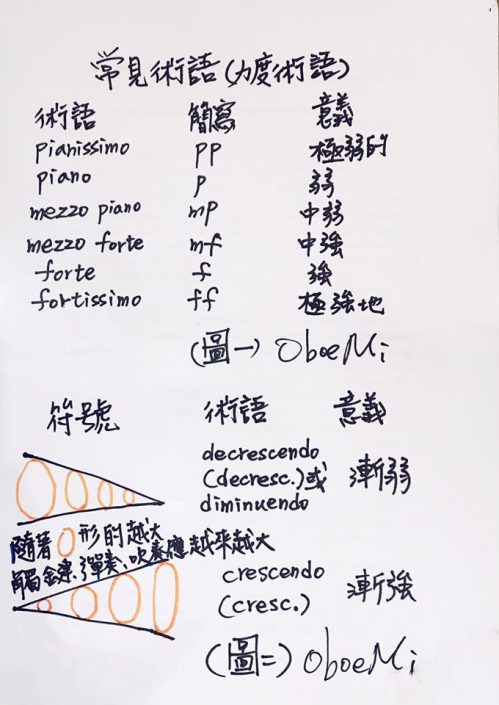 常見術語(力度術語)
術語 簡寫 意義
pianissimo pp 極弱的
piano p 弱
mezzo piano mp 中弱
mezzo forte mf 中強
forte f 強
fortissimo ff 極強地
(圖一) OboeMi
符號 術語 意義
decrescendo
(decresc.)或 漸弱
diminuendo
隨著 形的越大
觸鍵、彈奏、吹奏應越來越大
crescendo 漸強
(cresc.)
(圖二) OboeMi